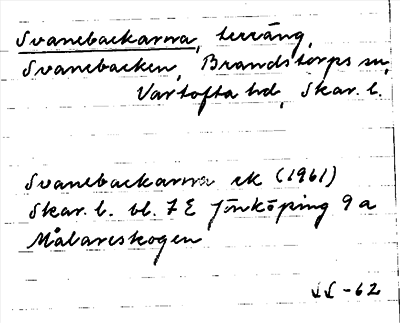 Svanebackarna, terräng,
Svanebacken, Brandstorps sn,
Vartofta hd, Skar. l.
Svanebackarna ek (1961)
Skar. l. bl. 7 E Jönköping 9 a
Målareskogen
-62